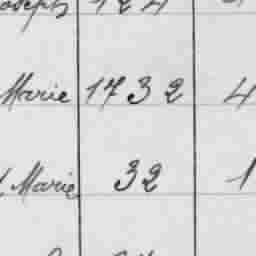 Joseph 124
Marie 1732 4
Marie 32 1